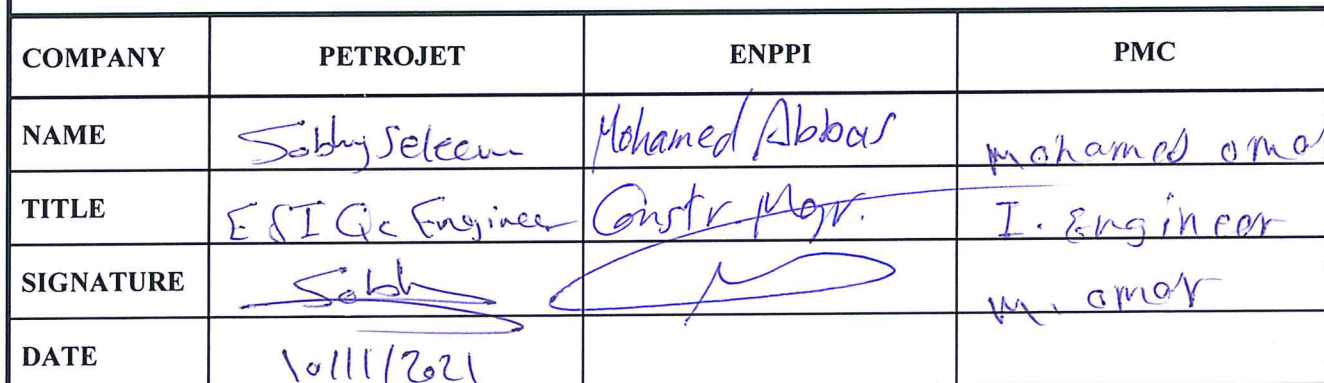 COMPANY PETROJET ENPPI PMC
NAME Sobhy Seleem Mohamed Abbas mohamed oma
TITLE E&I Qc Engineer Constr Mgr. I. Engineer
SIGNATURE Sobh M. omar
DATE 10/11/2021